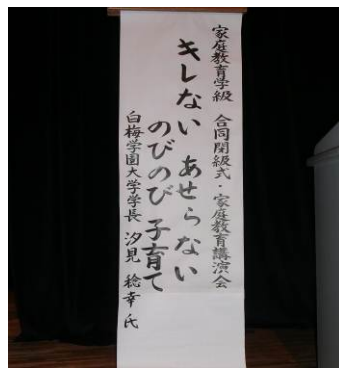 家庭教育学級 合同開級式・家庭教育講演会
キレない あせらない
のびのび 子育て
白梅学園大学学長 汐見 稔幸 氏